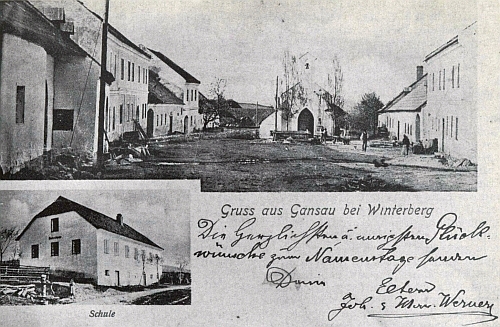 Gruss aus Gansau bei Winterberg
Die herzlichsten u. innigsten Glück-
wünsche zum Namenstage senden
Eltern
Joh. u. Werner
Schule